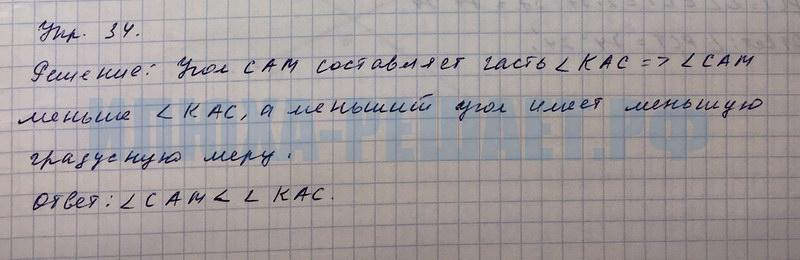 Упр. 34.
Решение: Угол САМ составляет часть ∠ КАС => ∠ САМ
меньше ∠ КАС, а меньший угол имеет меньшую
градусную меру.
Ответ: ∠ САМ < ∠ КАС.
ИЛЮХА-РЕШАЕТ.РФ